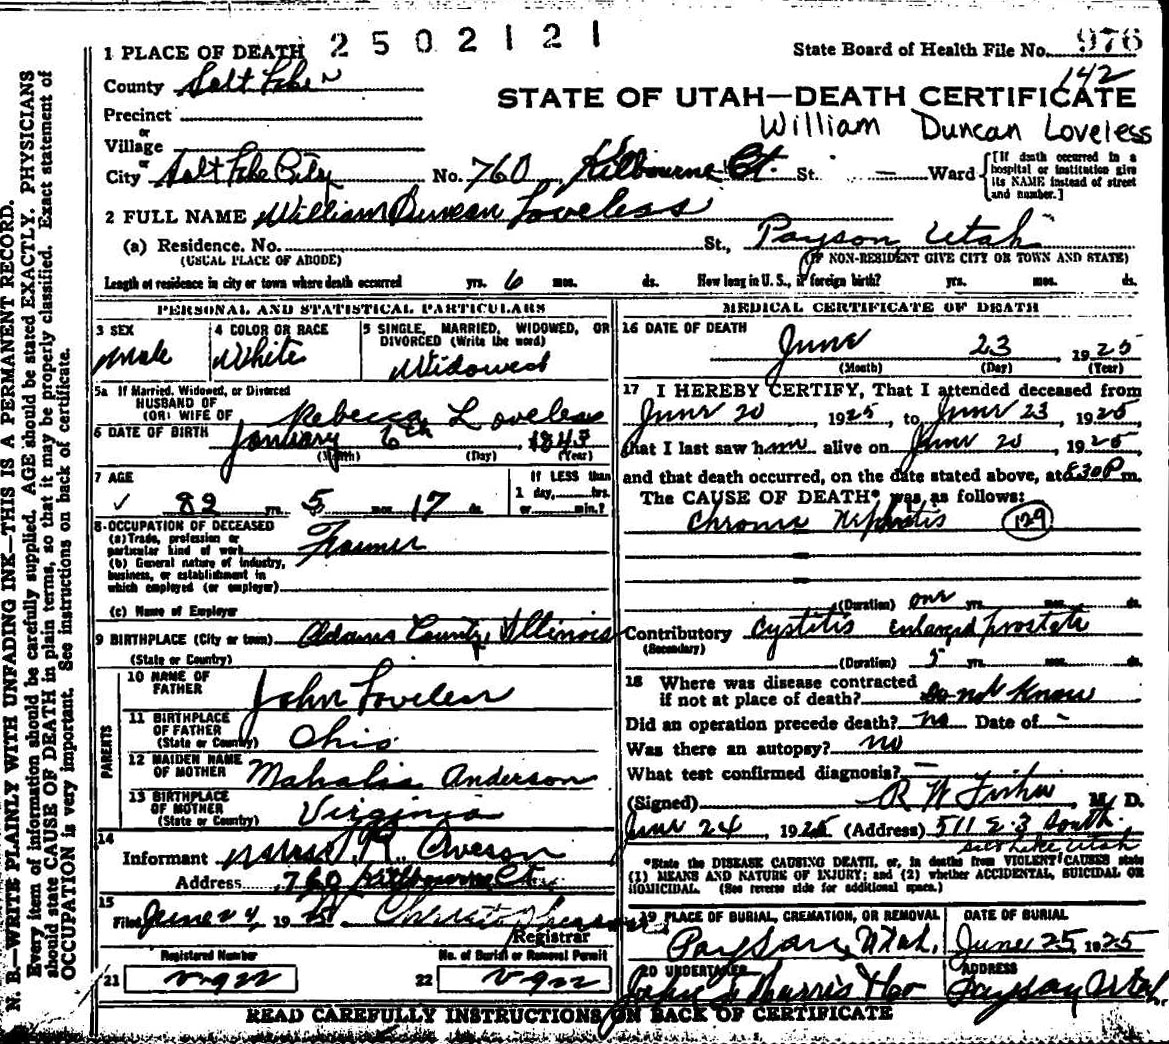 1 PLACE OF DEATH 2502121 State Board of Health File No. 976
County Salt Lake 142
STATE OF UTAH—DEATH CERTIFICATE
Precinct
William Duncan Loveless
or
Village
or
City Salt Lake City No. 760 Kilbourne Ct. St. — Ward [If death occurred in a hospital or institution give its NAME instead of street and number.]
2 FULL NAME William Duncan Loveless
(a) Residence. No. St., Payson, Utah
(USUAL PLACE OF ABODE) (IF NON-RESIDENT GIVE CITY OR TOWN AND STATE)
Length of residence in city or town where death occurred yrs. 6 mos. ds. How long in U. S., if foreign birth? yrs. mos. ds.
PERSONAL AND STATISTICAL PARTICULARS
3 SEX
male
4 COLOR OR RACE
White
5 SINGLE, MARRIED, WIDOWED, OR
DIVORCED (Write the word)
Widowed
5a If Married, Widowed, or Divorced
HUSBAND OF
(OR) WIFE OF Rebecca Loveless
6 DATE OF BIRTH January 6th, 1843
(Month) (Day) (Year)
7 AGE
✓ 82 yrs. 5 mos. 17 ds.
If LESS than
1 day, hrs.
or min.?
8-OCCUPATION OF DECEASED
(a) Trade, profession or
particular kind of work Farmer
(b) General nature of industry,
business, or establishment in
which employed (or employer)
(c) Name of Employer
9 BIRTHPLACE (City or town) Adams County, Illinois
(State or Country)
PARENTS
10 NAME OF
FATHER John Loveless
11 BIRTHPLACE
OF FATHER
(State or Country) Ohio
12 MAIDEN NAME
OF MOTHER Mahalia Anderson
13 BIRTHPLACE
OF MOTHER
(State or Country) Virginia
14
Informant R.
Address 760 Kilbourne Ct.
15
Filed June 24, 19
Registrar
Registered Number No. of Burial or Removal Permit
21 v-922 22 v-922
MEDICAL CERTIFICATE OF DEATH
16 DATE OF DEATH
June 23 1925
(Month) (Day) (Year)
17 I HEREBY CERTIFY, That I attended deceased from
June 20 1925, to June 23, 1925,
that I last saw him alive on June 20, 1925,
and that death occurred, on the date stated above, at 830P m.
The CAUSE OF DEATH* was as follows:
Chronic Nephritis 129
(Duration) one yrs. mos. ds.
Contributory Cystitis enlarged prostate
(Secondary)
(Duration) 5 yrs. mos. ds.
18 Where was disease contracted
if not at place of death? Do not Know
Did an operation precede death? no Date of -
Was there an autopsy? no
What test confirmed diagnosis? —
(Signed) R W Fisher, M. D.
June 24, 1925 (Address) 511 E. 3 South.
Salt Lake Utah
*State the DISEASE CAUSING DEATH, or, in deaths from VIOLENT CAUSES state
(1) MEANS AND NATURE OF INJURY; and (2) whether ACCIDENTAL, SUICIDAL OR
HOMICIDAL. (See reverse side for additional space.)
19 PLACE OF BURIAL, CREMATION, OR REMOVAL
Payson, Utah.
DATE OF BURIAL
June 25, 1925
20 UNDERTAKER
Harris & Co
ADDRESS
Payson Utah.
READ CAREFULLY INSTRUCTIONS ON BACK OF CERTIFICATE
N. B.—WRITE PLAINLY WITH UNFADING INK—THIS IS A PERMANENT RECORD.
Every item of information should be carefully supplied. AGE should be stated EXACTLY. PHYSICIANS
should state CAUSE OF DEATH in plain terms, so that it may be properly classified. Exact statement of
OCCUPATION is very important. See instructions on back of certificate.